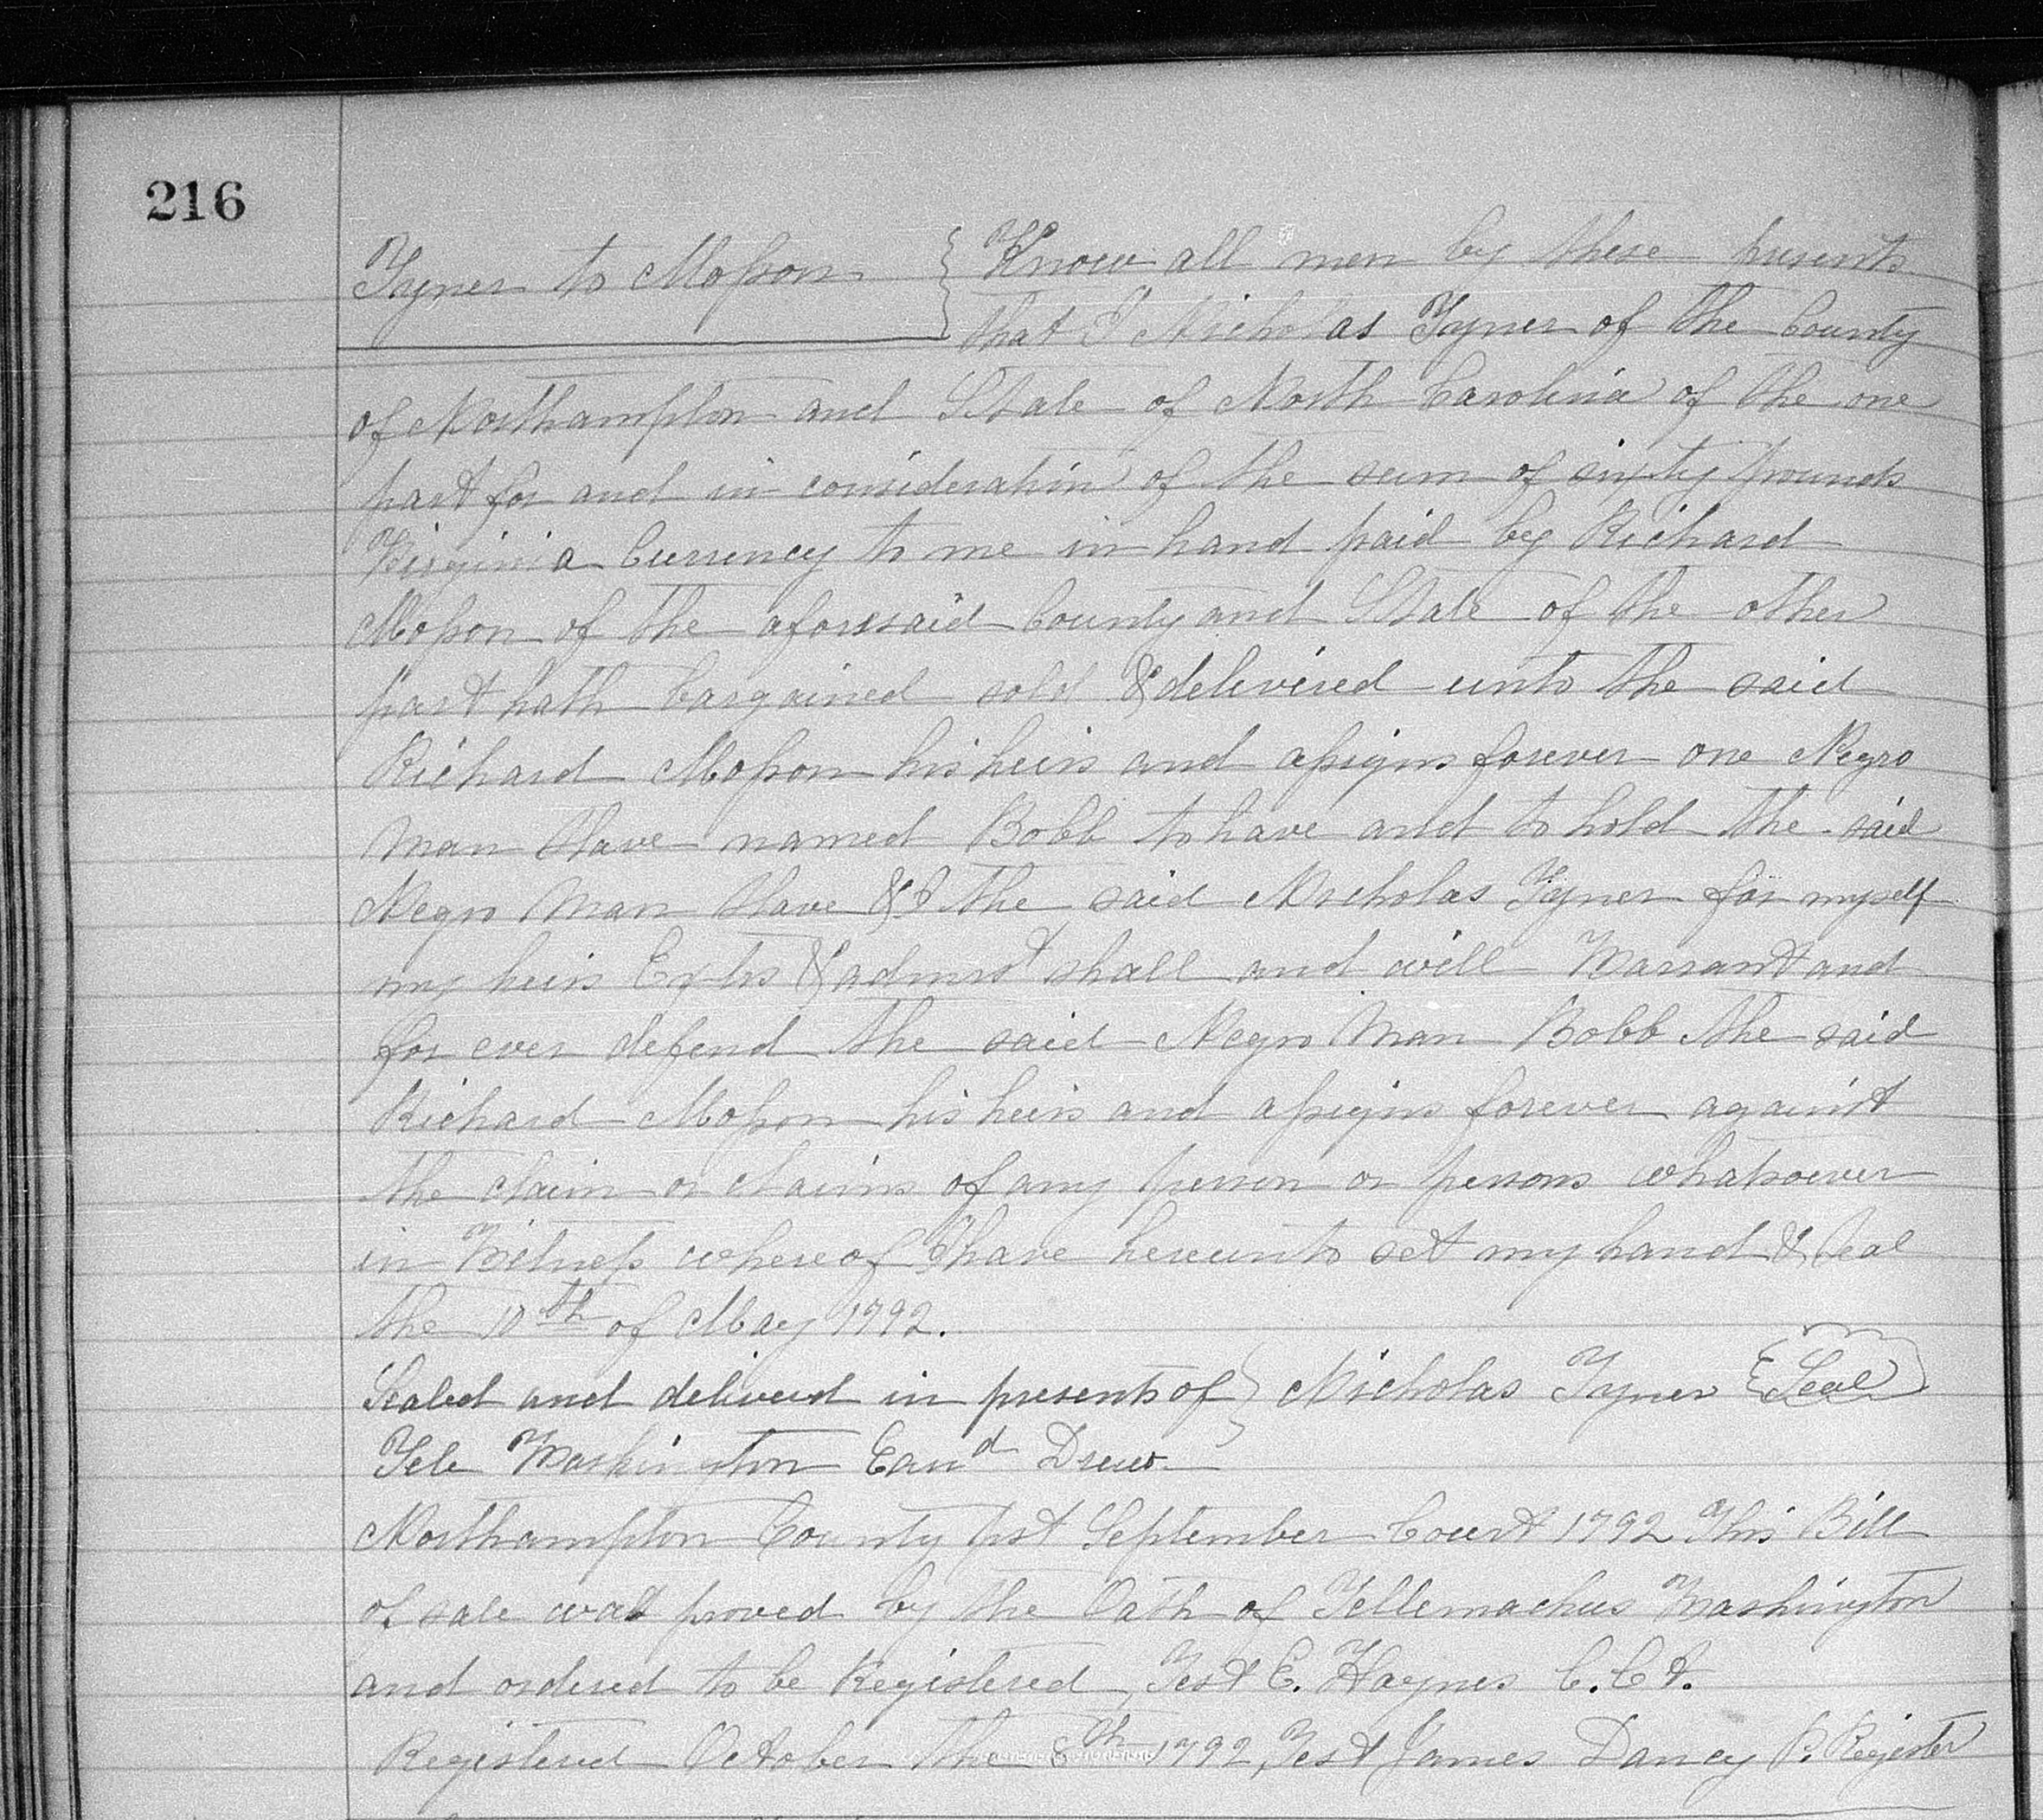 216
Tyner to Moſson } Know all men by these presents
that I Nicholas Tyner of the County
of Northampton and State of North Carolina of the one
part for and in consideration of the sum of sixty pounds
Virginia Currency to me in hand paid by Richard
Moſson of the aforesaid County and State of the other
part hath bargained sold & delivered unto the said
Richard Moſson his heirs and aſsigns forever one Negro
Man Slave named Bobb to have and to hold the said
Negro Man Slave & I the said Nicholas Tyner for myself
my heirs Extrs & admrs shall and will Warrant and
for ever defend the said Negro Man Bobb the said
Richard Moſson his heirs and aſsigns forever against
the claim or claims of any person or persons whatsoever
in Witneſs whereof I have hereunto set my hand & Seal
the 10th of May 1792.
Sealed and delivered in presents of } Nicholas Tyner {Seal}
Tele Washington Drew
Northampton County September Court 1792 This Bill
of sale was proved by the Oath of Tellemachus Washington
and ordered to be Registered, Test E. Haynes C.Ct.
Registered October the 8th 1792, Test James Dancy P. Register